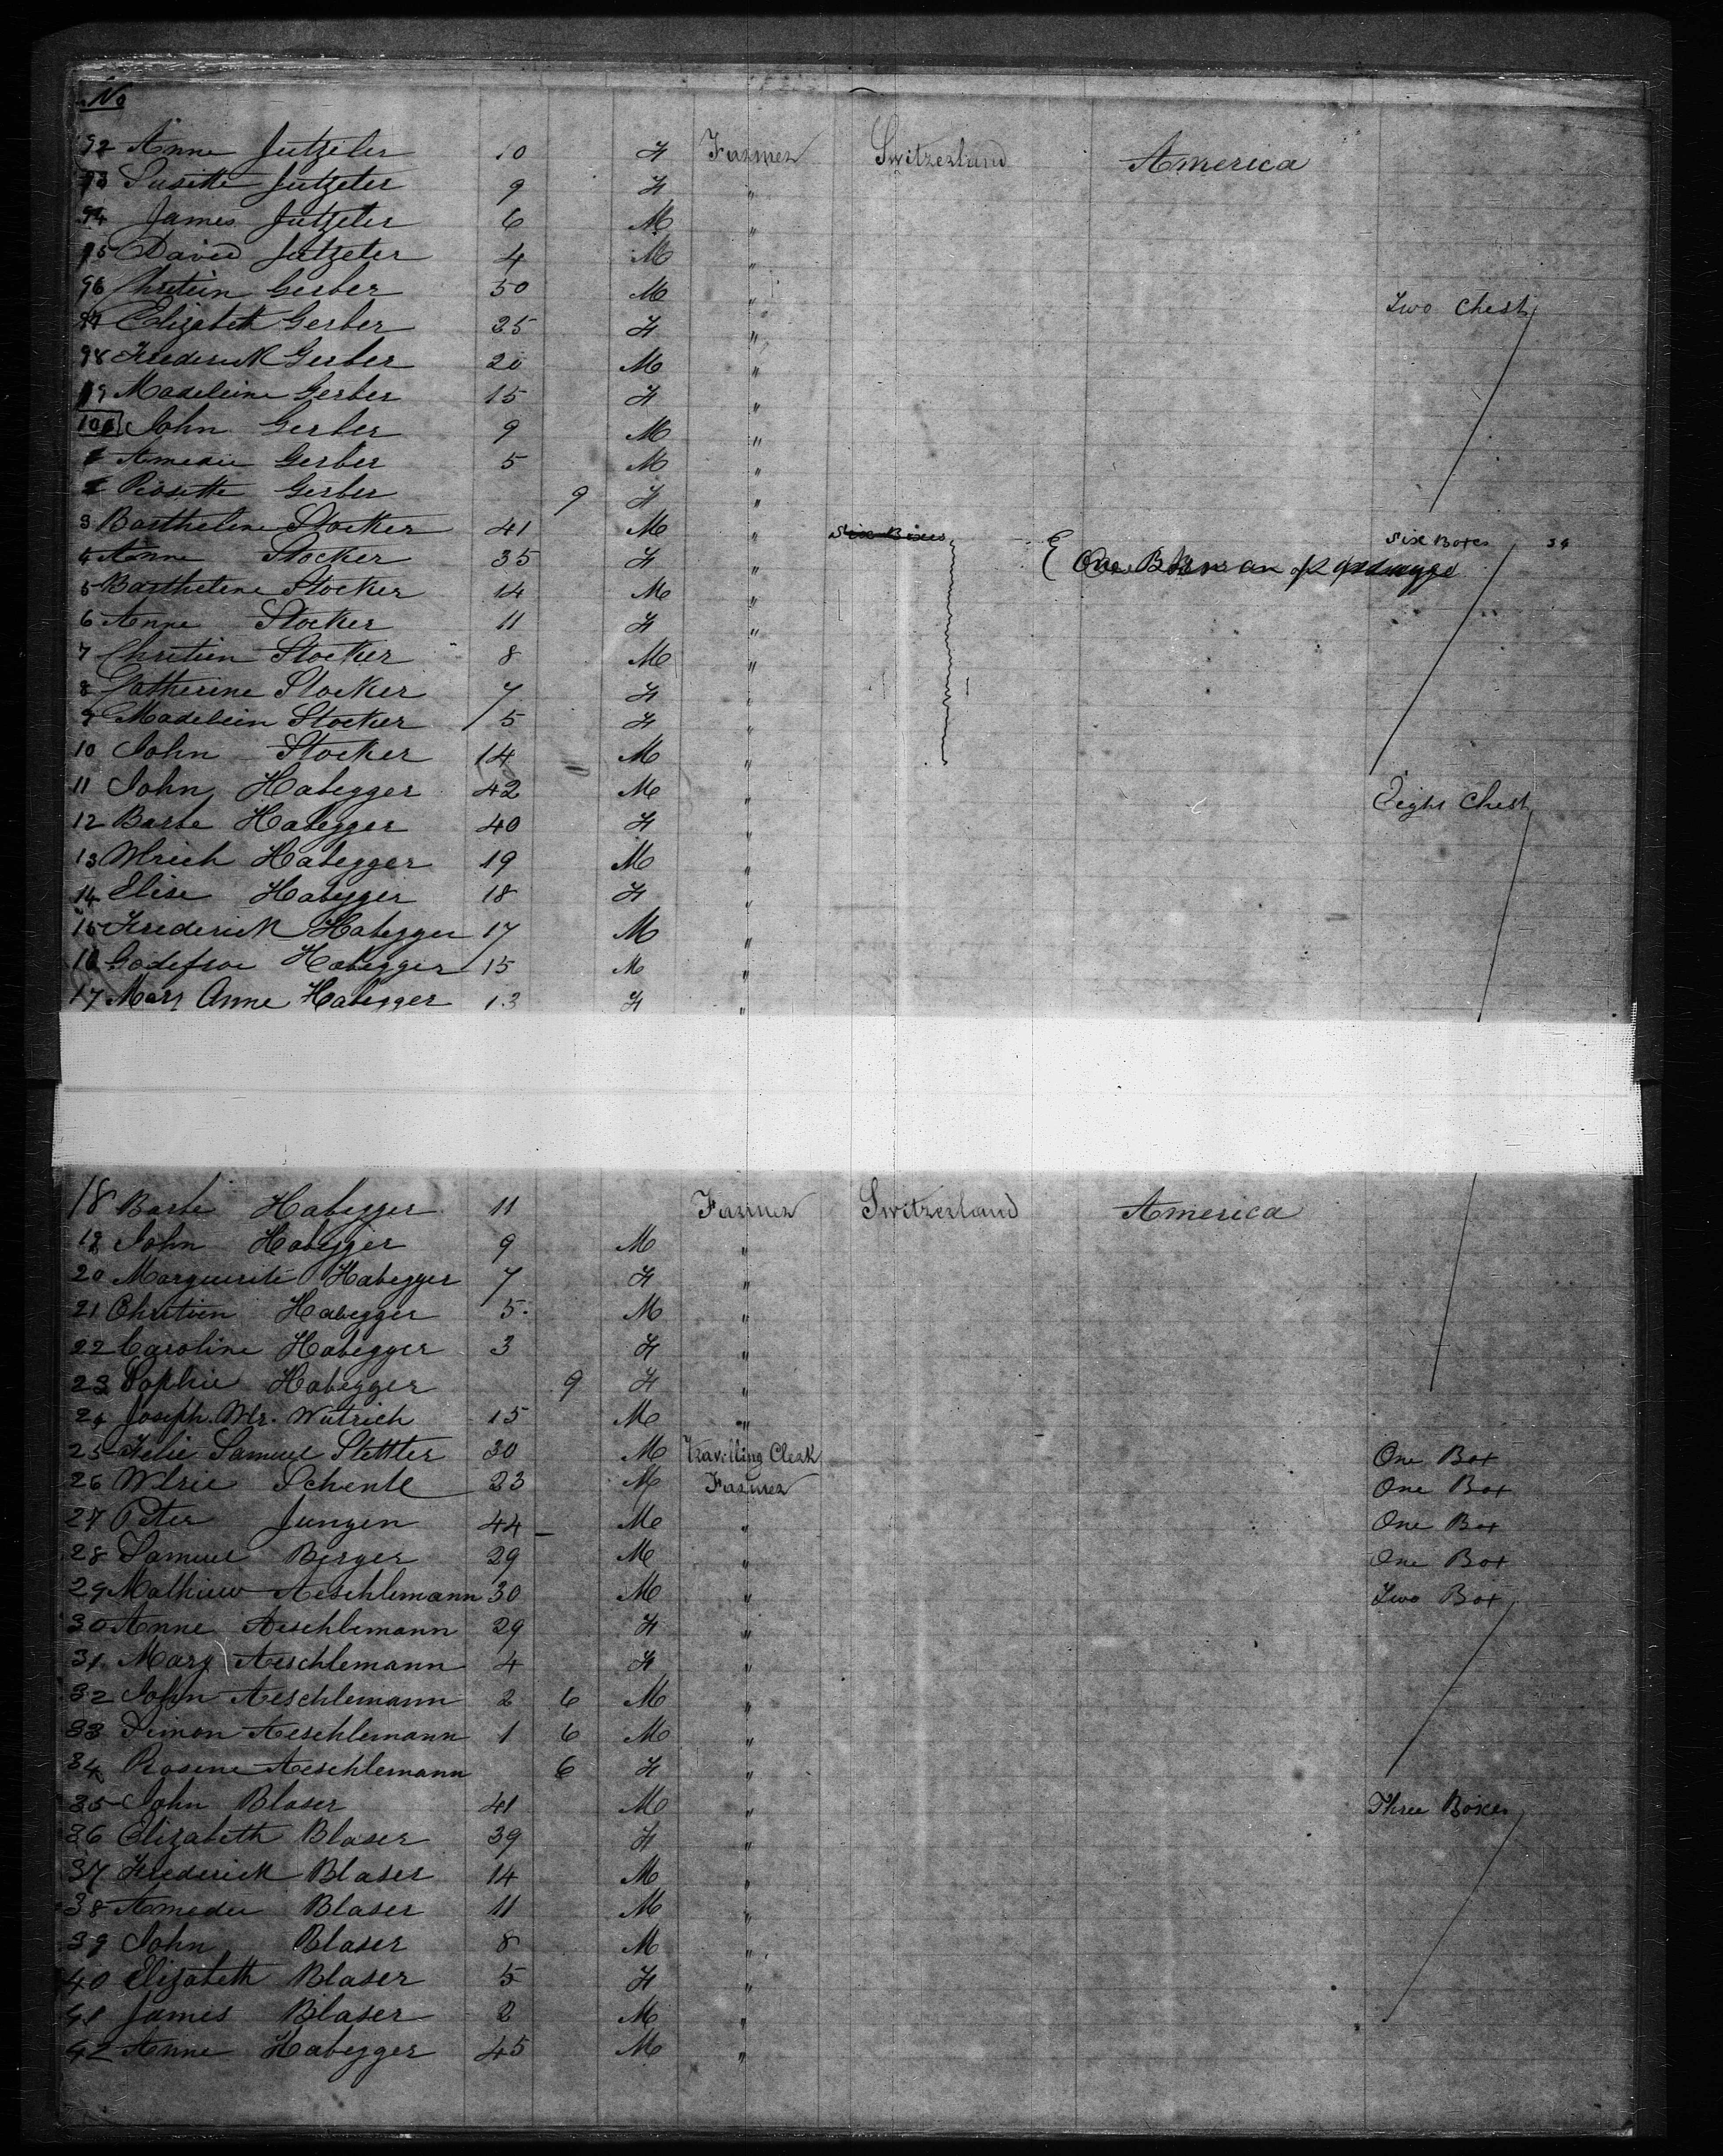 No
92 Anne Jutzeler 10 F Farmer Switzerland America
93 Susette Jutzeler 9 F "
94 James Jutzeler 6 M "
95 David Jutzeler 4 M "
96 Chretien Gerber 50 M " Two Chest
97 Elizabeth Gerber 25 F "
98 Frederick Gerber 20 M "
99 Madeleine Gerber 15 F "
100 John Gerber 9 M "
1 Amedie Gerber 5 M "
2 Rosette Gerber 9 F "
3 Barthelene Stocker 41 M " Six Boxes Six Boxes 34
4 Anne Stocker 35 F " One
5 Barthelene Stocker 14 M "
6 Anne Stocker 11 F "
7 Chretien Stocker 8 M "
8 Catherine Stocker 7 F "
9 Madelein Stocker 5 F "
10 John Stocker 14 M "
11 John Habegger 42 M " Eight Chest
12 Barbe Habegger 40 F "
13 Ulrich Habegger 19 M "
14 Elise Habegger 18 F "
15 Frederick Habegger 17 M "
16 Godefroi Habegger 15 M "
17 Mary Anne Habegger 13 F "
18 Barbe Habegger 11 Farmer Switzerland America
19 John Habegger 9 M "
20 Marguerite Habegger 7 F "
21 Chretien Habegger 5 M "
22 Caroline Habegger 3 F "
23 Sophie Habegger 9 F "
24 Joseph Ulr. Wutrich 15 M "
25 Felie Samuel Stettler 30 M Travelling Clerk One Box
26 Ulric Schenle 23 M Farmer One Box
27 Peter Jungen 44 M " One Box
28 Samuel Berger 29 M " One Box
29 Mathieu Aeschlemann 30 M " Two Box
30 Anne Aeschlemann 29 F "
31 Mary Aeschlemann 4 F "
32 John Aeschlemann 2 6 M "
33 Simon Aeschlemann 1 6 M "
34 Rosine Aeschlemann 6 F "
35 John Blaser 41 M " Three Boxes
36 Elizabeth Blaser 39 F "
37 Frederick Blaser 14 M "
38 Amedee Blaser 11 M "
39 John Blaser 8 M "
40 Elizabeth Blaser 5 F "
41 James Blaser 2 M "
42 Anne Habegger 45 M "